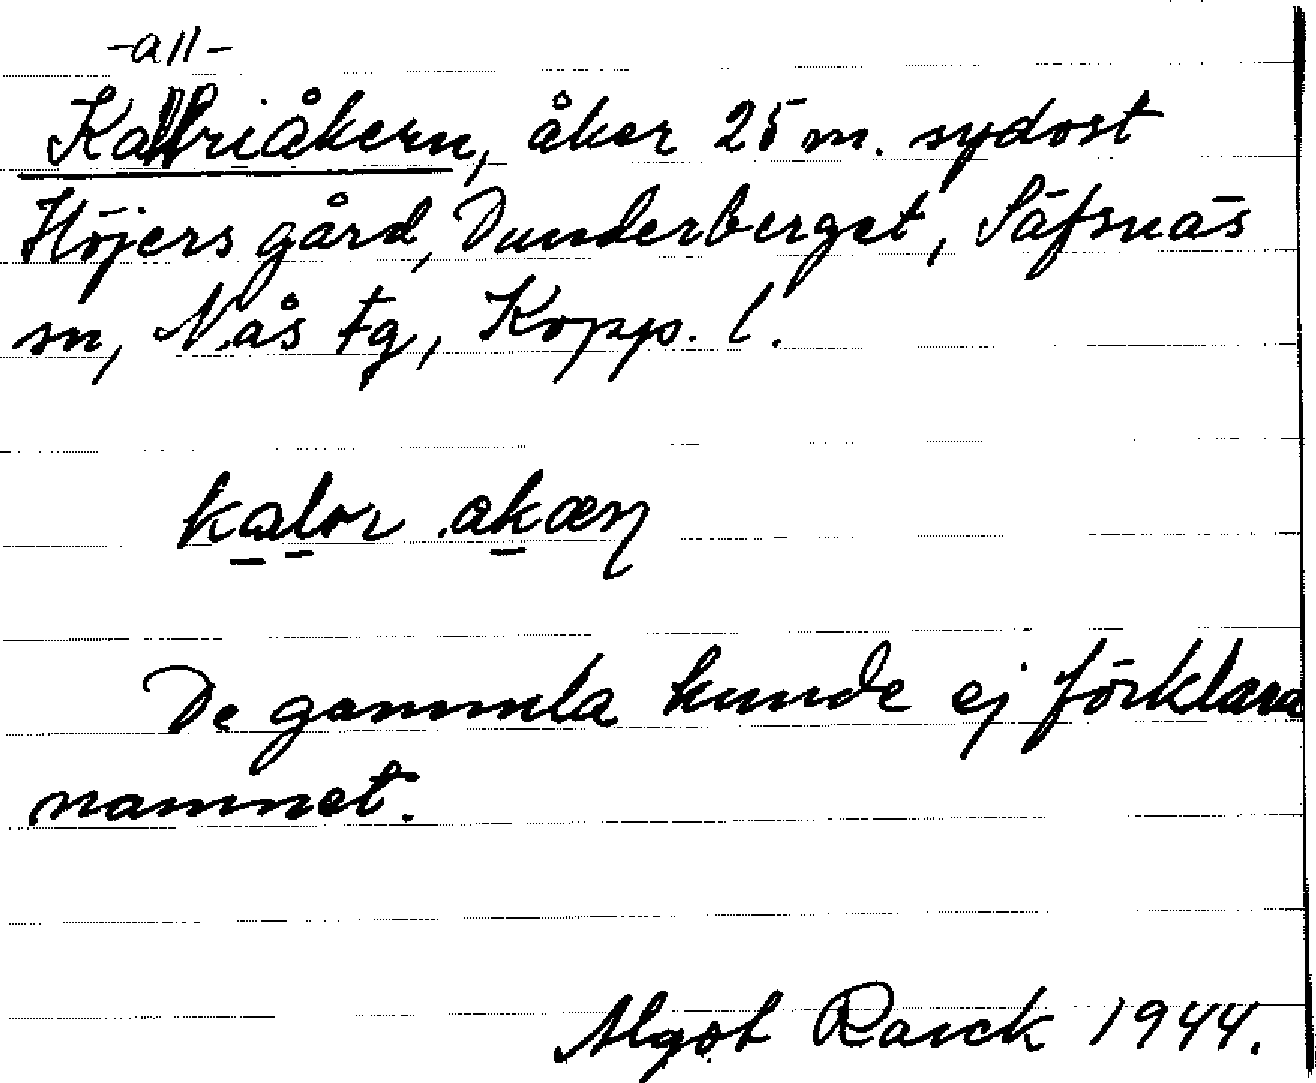 -all-
Kallriåkern, åker 25 m. sydost
Höjers gård, Dunderberget, Säfsnäs
sn, Nås tg, Kopp. l.
De gammla kunde ej förklara
namnet.
Algot Rarck 1944.